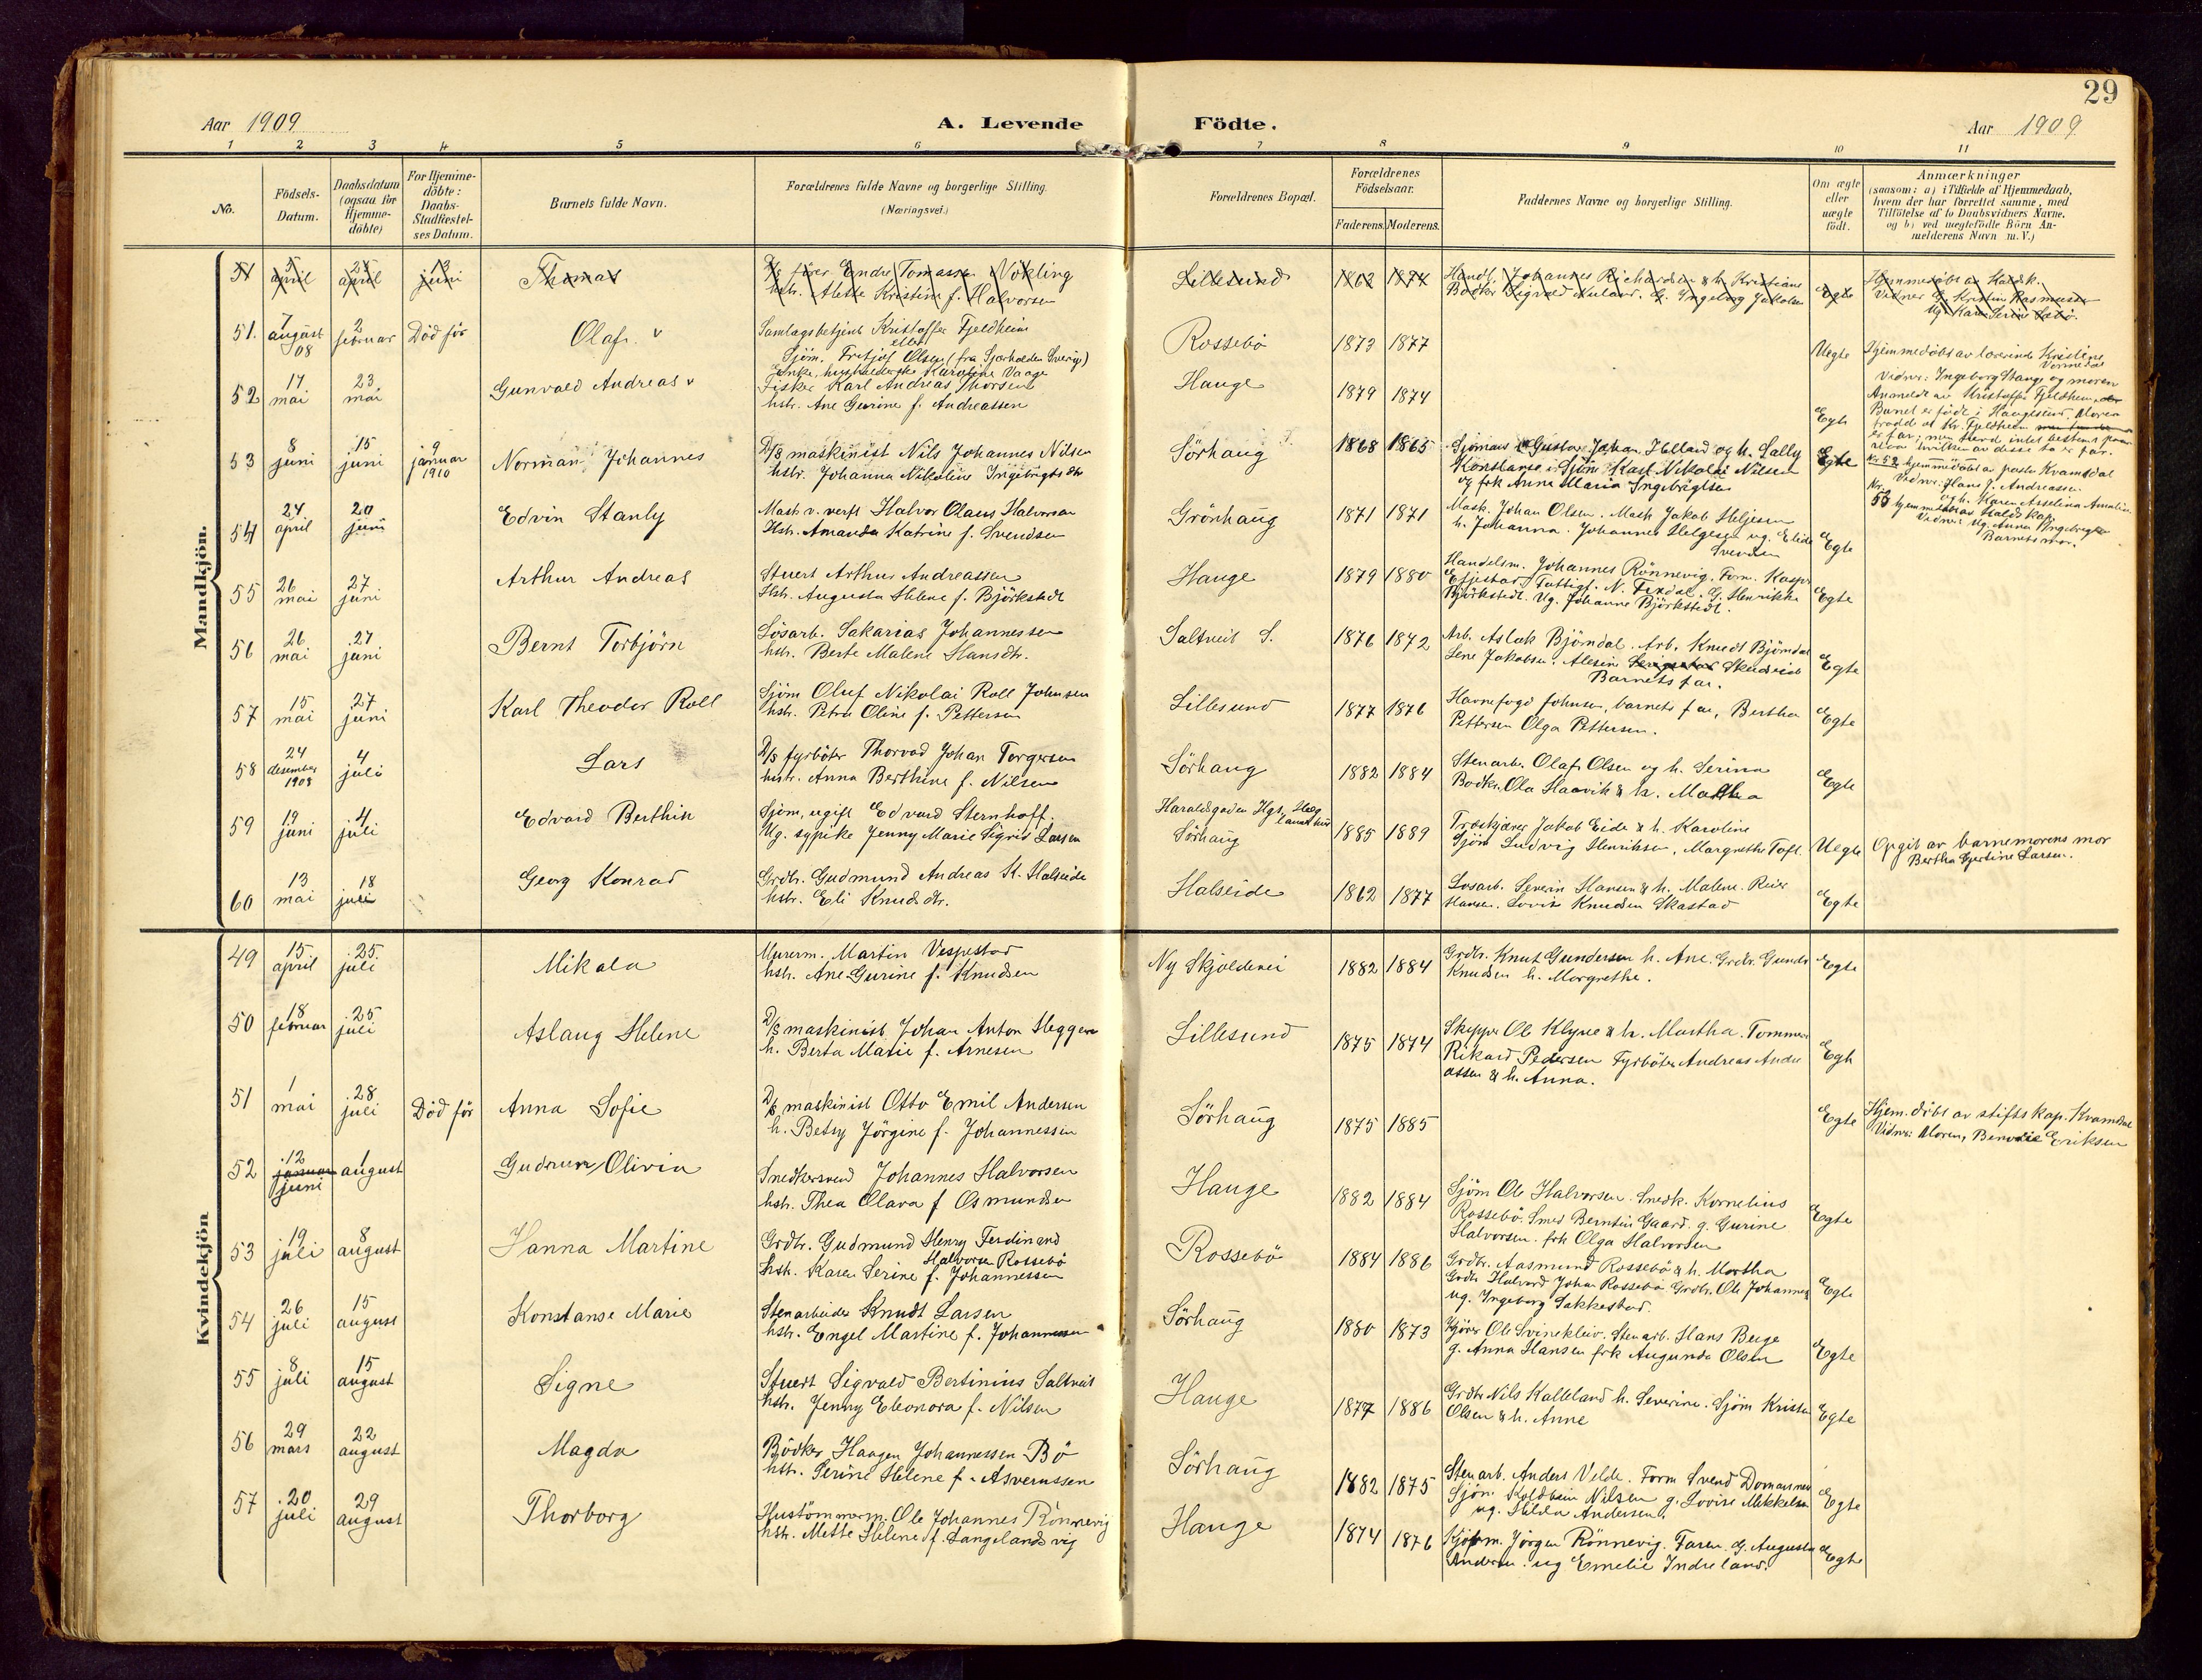 29
Aar 1909
A. Levende Födte.
Aar 1909
1 2 3 4 5 6 7 8 9 10 11
No.
Födsels-Datum.
Daabsdatum (ogsaa for Hjemme-döbte)
For Hjemme-döbte: Daabs-Stadfestel-ses Datum.
Barnets fulde Navn.
Forældrenes fulde Navne og borgerlige Stilling.
(Næringsvei.)
Forældrenes Bopæl.
Forældrenes Födselsaar.
Faderens. Moderens.
Faddernes Navne og borgerlige Stilling.
Om ægte eller uægte födt.
Anmærkninger
(saasom: a) i Tilfælde af Hjemmedaab,
hvem der har forrettet samme, med
Tilföielse af to Daabsvidners Navne.
og b) ved uægtefödte Börn An-
melderens Navn m. V.)
Mandkjön.
51 5 april april 13 juni Thomas
Endre Tomassen Vokling
hstr. Alette Kristine f. Halvorsen
Lillesund 1862 1874
Handl. Johannes Richardsen & h. Kristiane
Egte
51. 7 august 08 2 februar Död för Olaf.
Samlagsbetjent Kristoffer Fjeldheim
eller
Sjöm. Fritjof Olsen (fra Sverige)
Enke, husholderske Karoline Vaage
Rossebö 1873 1877
Uegte
Hjemmedöbt av lærerinde Kristine
Vidner: Ingeborg Stange og moren
Anmeldt av Kristoffer Fjeldheim
Barnet er född i Haugesund. Moren
52 17 mai 23 mai Gunvald Andreas
Fisker Karl Andreas Thorsen
hstr. Ane Gurine f. Andreassen
Hauge 1879 1874
Egte
Nr 52 hjemmedöbt av pastor Kvamsdal
Vidner: Hans J. Andreassen
53 8 juni 15 juni 9 januar 1910 Norman Johannes
D/S maskinist Nils Johannes Nilsen
hstr. Johanna Nikoline Ingebrigtsdtr
Sörhaug 1868 1865
Sjömand Gustav Johan Helland og h. Lally
Konstanse. Sjöm Karl Nikolai Nilsen
og frk Anna Maria Ingebrigtsen
Egte
Barnets mor.
54 24 april 20 juni Edvin Stanly
Mask v. verft Halvor Olaus Halvorsen
Hstr. Amanda Katrine f. Svendsen
Grönhaug 1871 1871
Mask. Johan Olsen. Mask Jakob Heljesen
h. Johanna. Johannes Helgesen ug. Elide
Svendsen
Egte
55 26 mai 27 juni Arthur Andreas
Stuert Arthur Andreassen
Hstr. Augusta Helene f. Björkstedt
Hauge 1879 1880
Handelsm. Johannes Rönnevig. Tom. Kasper
Björkstedt. Ug. Johanne Björkstedt.
Egte
56 26 mai 27 juni Bernt Torbjörn
Lösarb. Sakarias Johannessen
hstr. Berte Malene Hansdtr.
Saltveit S. 1876 1872
Arb. Aslak Björndal. Arb. Knudt Björndal
Lene Jakobsen. Alesine
Barnets far.
Egte
57 15 mai 27 juni Karl Theodor Roll
Sjöm Oluf Nikolai Roll Johnsen
hstr. Petra Oline f. Pettersen
Lillesund 1877 1876
Havnefogd Johnsen, barnets far, Bertha
Pettersen Olga Pettersen.
Egte
58 24 desember 1908 4 juli Lars
D/S fyrböter Thorvad Johan Torgersen
hstr. Anna Berthine f. Nilsen
Sörhaug 1882 1884
Stenarb. Olaf Olsen og h. Serina
Bødker Ola Haavik & h. Martha
Egte
59 19 juni 4 juli Edvard Berthin
Sjöm, ugift Edvard Sternhoff.
Ug. sypike Jenny Marie Sigrid Larsen
Haraldsgaden Hgs.
Sörhaug 1885 1889
Træskjærer Jakob Eide & h. Karoline
Sjöm Ludvig Henriksen, Margrethe Toft.
Uegte
Opgit av barnemorens mor
Bertha Gjertine Larsen.
60 13 mai 18 juli Georg Konrad
Grdbr. Gudmund Andreas K. Halseide
hstr. Eli Knudsdtr.
Halseide 1862 1877
Losarb. Severin Hansen & h. Malene. Reier
Hansen. Lovise Knudsen Skastad
Egte
Kvindekjön
49 15 april 25 juli Mikala
Murerm. Martin Vespestad
hstr. Ane Gurine f. Knudsen
Ny Skjoldevei 1882 1884
Grdbr. Knut Gundersen h. Ane. Grdbr. Gunder
Knudsen h. Margrethe.
Egte
50 18 februar 25 juli Aslaug Helene
D/S maskinist Johan Anton Heggen
h. Berta Marie f. Arnesen
Lillesund 1875 1874
Skipper Ole Klyve & h. Martha. Tømmer
Rikard Pedersen Fyrböter Andreas Andre
assen & h. Anna.
Egte
51 1 mai 28 juli Död för Anna Sofie
D/S maskinist Otto Emil Andersen
h. Betsy Jörgine f. Johannessen
Sörhaug 1875 1885
Egte
Hjem.döbt av stiftskap. Kvamsdal
Vidner: Moren, Eriksen
52 12 januar juni 1 august Gudrun Olivia
Snedkersvend Johannes Halvorsen
hstr. Thea Olava f Osmundsen
Hauge 1882 1884
Sjöm Ole Halvorsen. Snedk. Kornelius
Rossebö. Smed Berntin Gaard. g. Gurine
Halvorsen. frk Olga Halvorsen
Egte
53 19 juli 8 august Hanna Martine
Grdbr. Gudmund Henry Ferdinand
Halvorsen Rossebö
hstr. Karen Serine f. Johannessen
Rossebö 1884 1886
Grdbr. Aasmund Rossebö & h. Martha
Grdbr Halvard Johan Rossebö Grdbr. Ole Johannes
ug. Ingeborg Sakkestad.
Egte
54 26 juli 15 august Konstanse Marie
Stenarbeider Knudt Larsen
hstr. Engel Martine f. Johannessen
Sörhaug 1880 1873
Kjörer Ole Svinekleiv. Stenarb. Hans Berge
g. Anna Hansen frk Augunda Olsen
Egte
55 8 juli 15 august Signe
Stuert Sigvald Bertinius Saltveit
hstr. Jenny Eleonora f. Nilsen
Hauge 1877 1886
Grdbr Nils Kalleland h. Severine. Sjöm Kristen
Olsen & h. Anne
Egte
56 29 mars 22 august Magda
Bödker Haagen Johannessen Bö
hstr. Serine Helene f. Asverussen
Sörhaug 1882 1875
Stenarb. Anders Velde. Form Svend Dommersnes
Sjöm. Nilsen g. Lovise Mikkelsen
ug. Hilda Andersen.
Egte
57 20 juli 29 august Thorborg
Hustömmerm. Ole Johannes Rönnevig
hstr. Mette Helene f. Langelandsvig
Hauge 1874 1876
Kjöbm. Jörgen Rönnevig. Faren. g. Augusta
Andersen. ug Emelie Indreland.
Egte